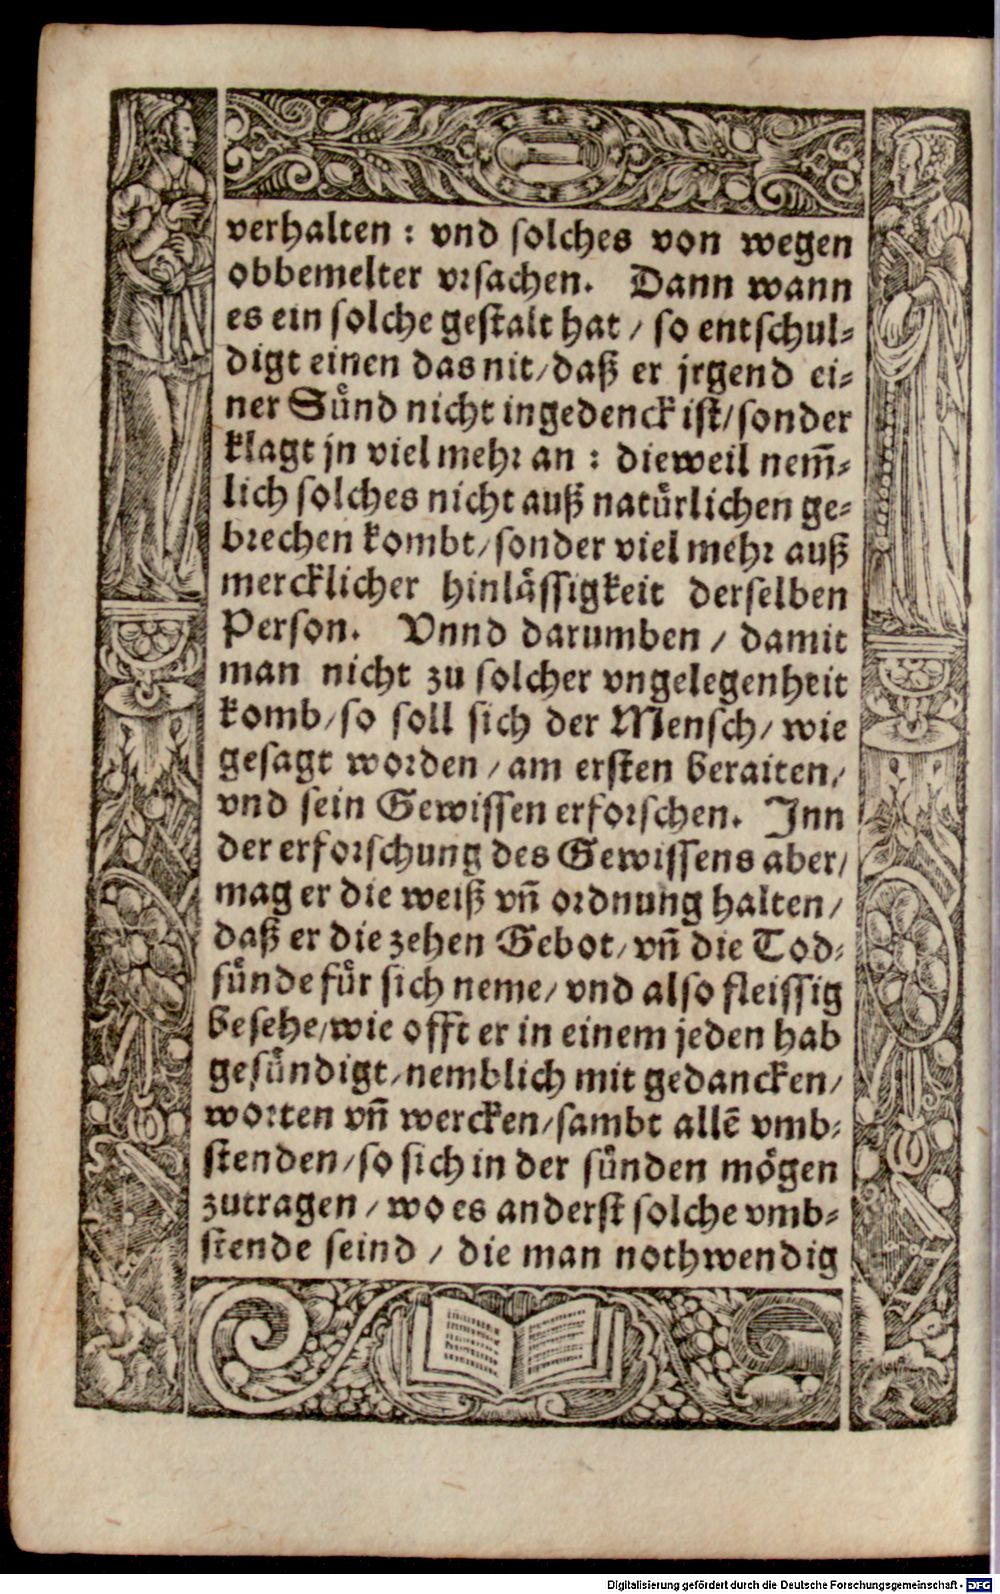 verhalten : vnd solches von wegen
obbemelter vrsachen. Dann wann
es ein solche gestalt hat / so entschul-
digt einen das nit / daß er jrgend ei-
ner Sünd nicht ingedenck ist / sonder
klagt jn viel mehr an : dieweil nem̃-
lich solches nicht auß natürlichen ge-
brechen kombt / sonder viel mehr auß
mercklicher hinlässigkeit derselben
Person. Vnnd darumben / damit
man nicht zu solcher vngelegenheit
komb / so soll sich der Mensch / wie
gesagt worden / am ersten beraiten /
vnd sein Gewissen erforschen. Inn
der erforschung des Gewissens aber /
mag er die weiß vñ ordnung halten /
daß er die zehen Gebot / vñ die Tod-
sünde für sich neme / vnd also fleissig
besehe / wie offt er in einem jeden hab
gesündigt / nemblich mit gedancken /
worten vñ wercken / sambt allẽ vmb-
stenden / so sich in der sünden mögen
zutragen / wo es anderst solche vmb-
stende seind / die man nothwendig
Digitalisierung gefördert durch die Deutsche Forschungsgemeinschaft - DFG